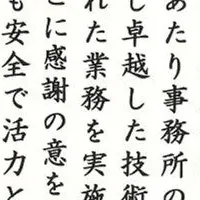 あたり事務所の
し卓越した技術
れた業務を実施
とに感謝の意を
も安全で活力と